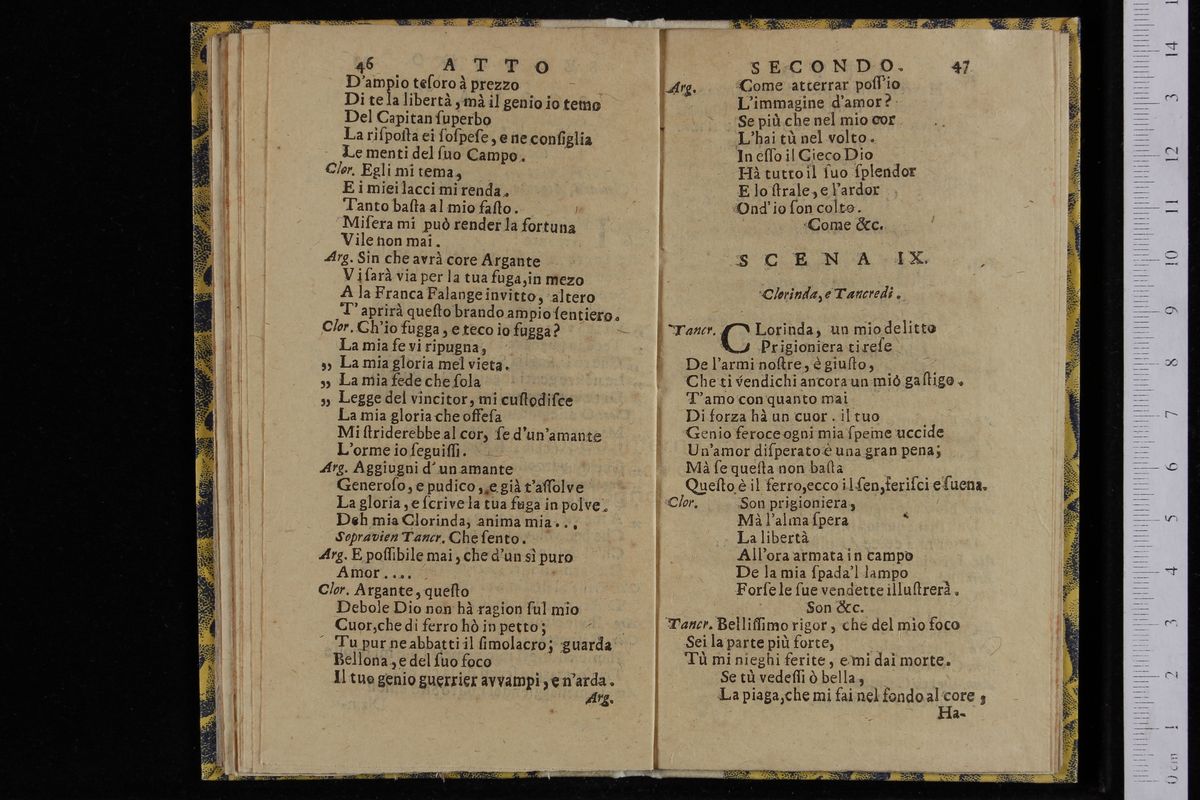 46 ATTO
D'ampio teſoro à prezzo
Di te la libertà, mà il genio io temo
Del Capitan ſuperbo
La riſpoſta ei ſoſpeſe, e ne conſiglia
Le menti del ſuo Campo.
Clor. Egli mi tema,
E i miei lacci mi renda.
Tanto baſta al mio faſto.
Miſera mi può render la fortuna
Vile non mai.
Arg. Sin che avrà core Argante
Vi ſarà via per la tua fuga, in mezo
A la Franca Falange invitto, altero
T'aprirà queſto brando ampio ſentiero.
Clor. Ch'io fugga, e teco io fugga?
La mia fe vi ripugna,
„ La mia gloria mel vieta.
„ La mia fede che ſola
„ Legge del vincitor, mi cuſtodiſce
La mia gloria che offeſa
Mi ſtriderebbe al cor, ſe d'un'amante
L'orme io ſeguiſſi.
Arg. Aggiugni d'un amante
Generoſo, e pudico, e già t'aſſolve
La gloria, e ſcrive la tua fuga in polve.
Deh mia Clorinda, anima mia...
Sopravien Tancr. Che ſento.
Arg. E poſſibile mai, che d'un sì puro
Amor....
Clor. Argante, queſto
Debole Dio non hà ragion ſul mio
Cuor, che di ferro hò in petto;
Tu pur ne abbatti il ſimolacro; guarda
Bellona, e del ſuo foco
Il tuo genio guerrier avvampi, e n'arda.
Arg.
SECONDO. 47
Arg. Come atterrar poſſ'io
L'immagine d'amor?
Se più che nel mio cor
L'hai tù nel volto.
In eſſo il Cieco Dio
Hà tutto il ſuo ſplendor
E lo ſtrale, e l'ardor
Ond'io ſon colto.
Come &c.
SCENA IX.
Clorinda, e Tancredi.
Tancr. CLorinda, un mio delitto
Prigioniera ti reſe
De l'armi noſtre, è giuſto,
Che ti vendichi ancora un mio gaſtigo.
T'amo con quanto mai
Di forza hà un cuor. il tuo
Genio feroce ogni mia ſpeme uccide
Un'amor diſperato è una gran pena;
Mà ſe queſta non baſta
Queſto è il ferro, ecco il ſen, feriſci e ſuena.
Clor. Son prigioniera,
Mà l'alma ſpera
La libertà
All'ora armata in campo
De la mia ſpada'l lampo
Forſe le ſue vendette illuſtrerà.
Son &c.
Tancr. Belliſſimo rigor, che del mio foco
Sei la parte più forte,
Tù mi nieghi ferite, e mi dai morte.
Se tù vedeſſi ò bella,
La piaga, che mi fai nel fondo al core,
Ha-